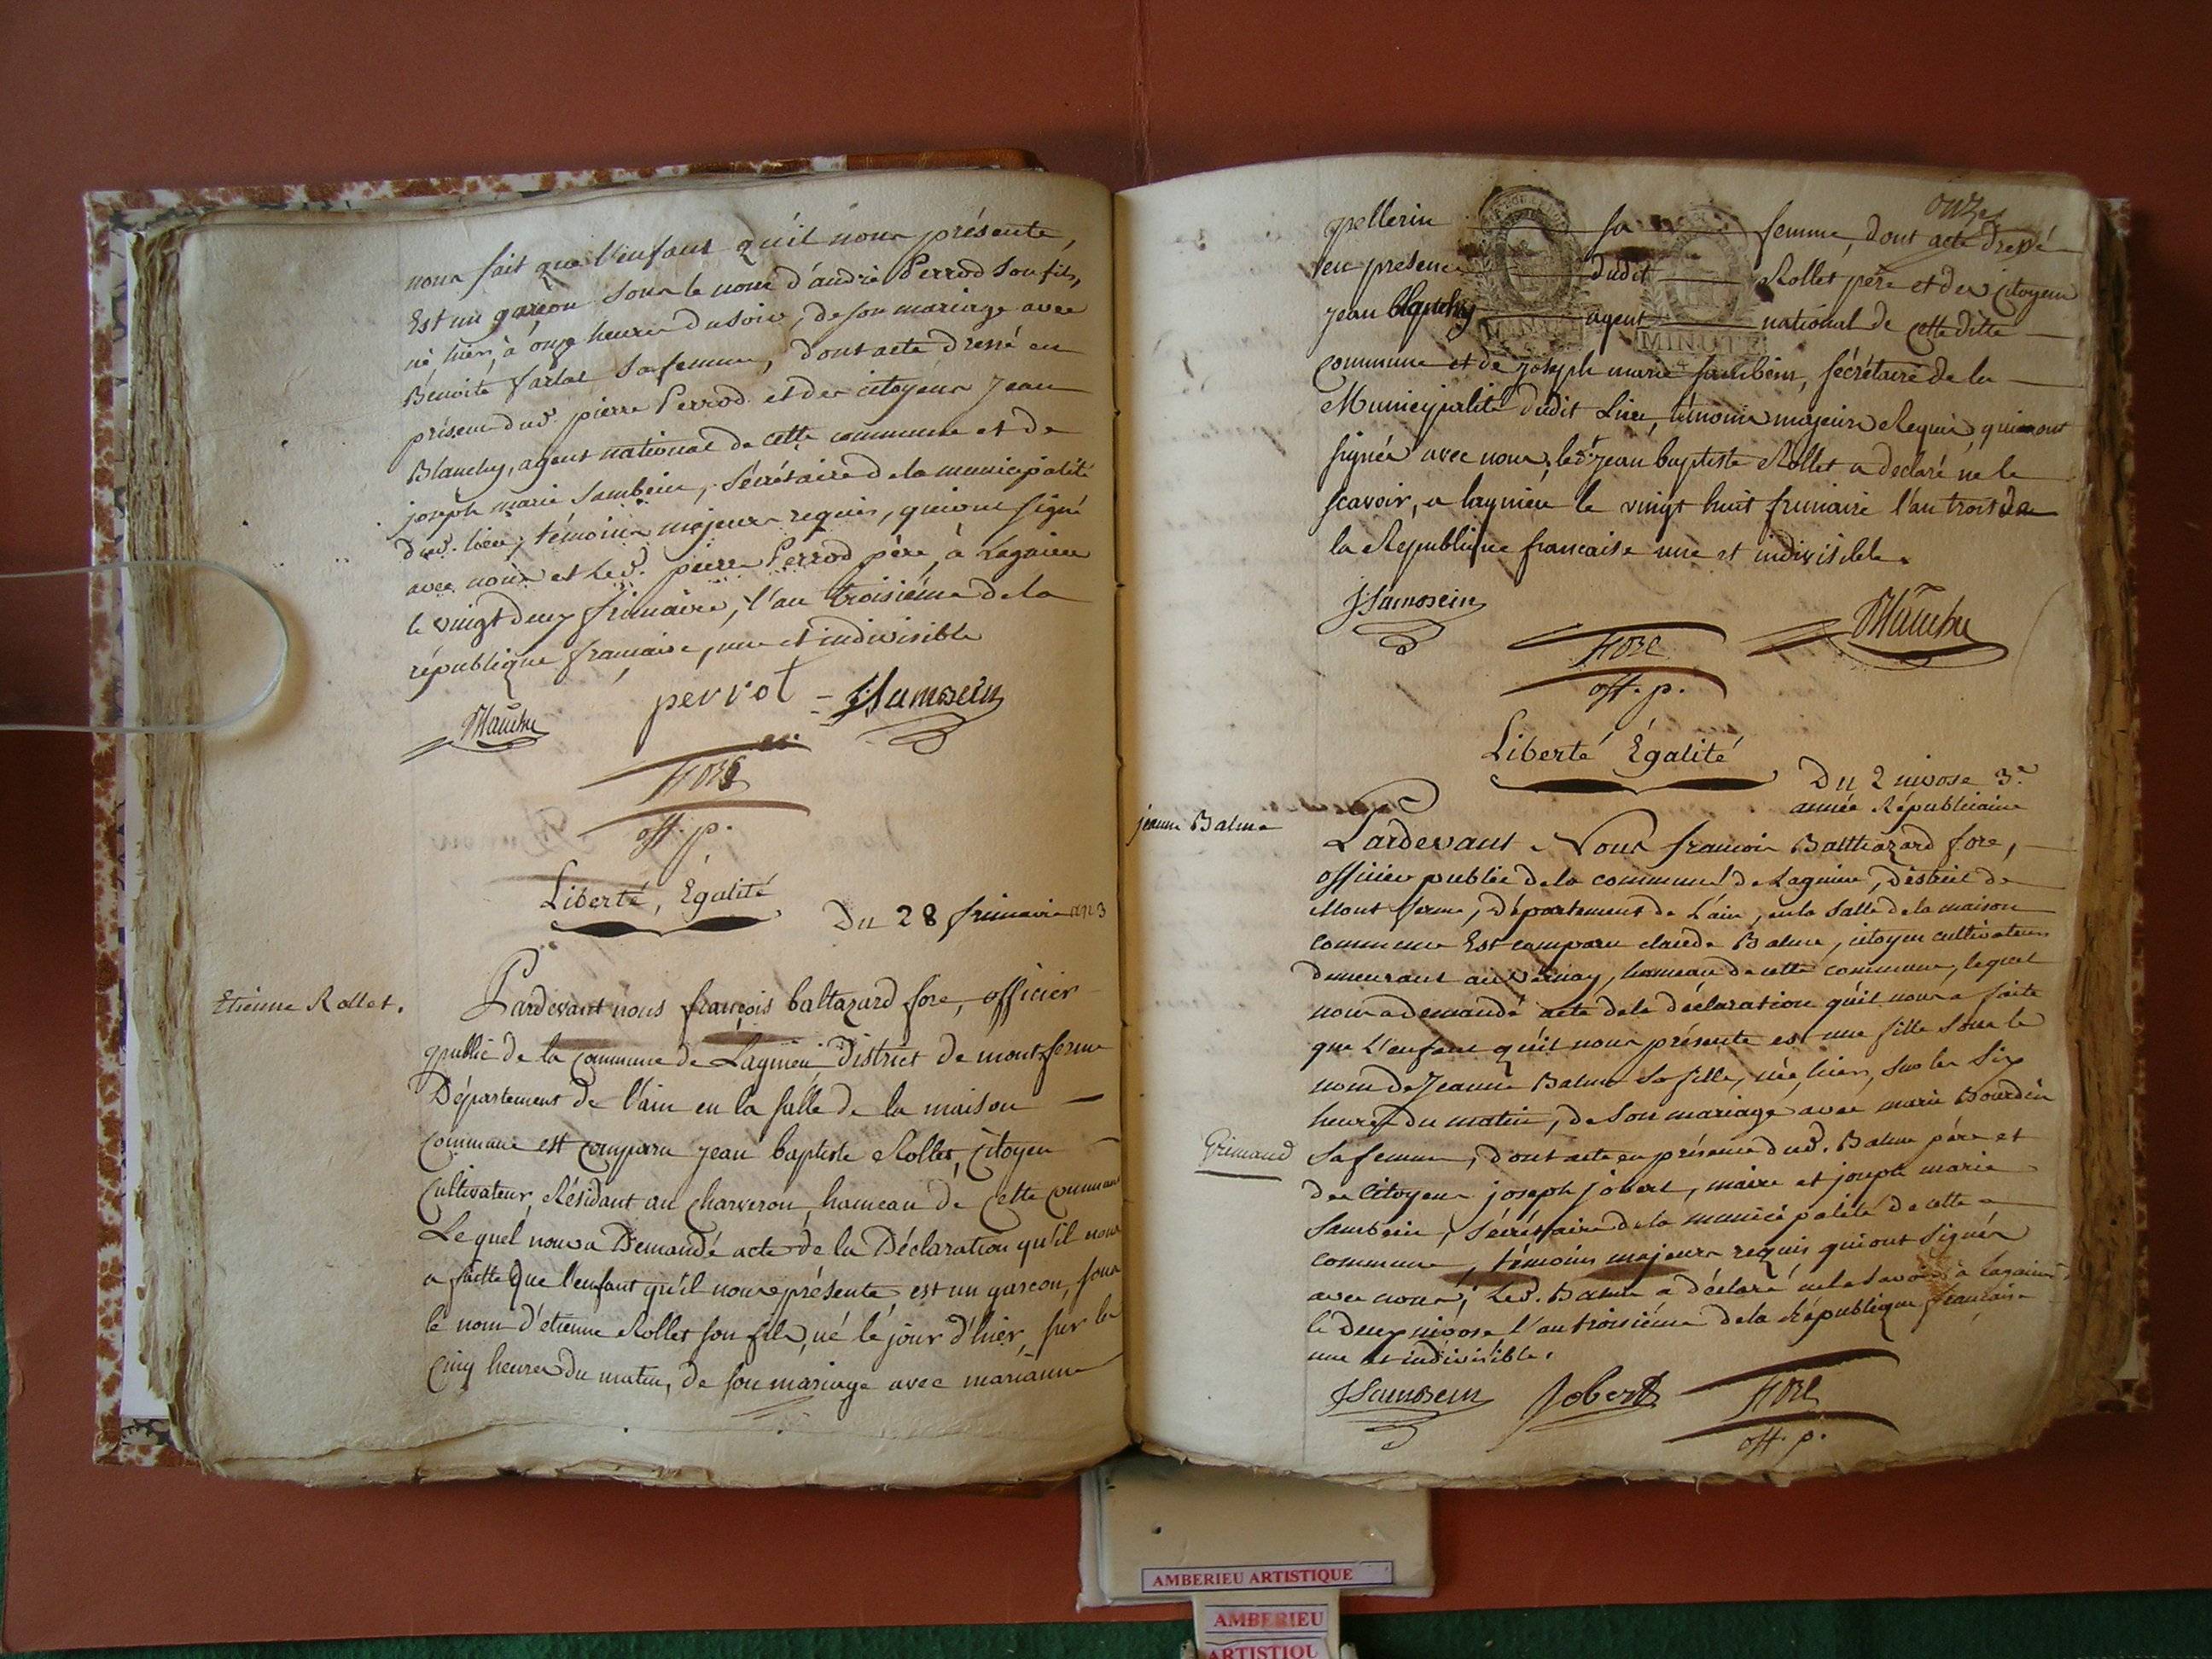 nous fait que l'enfant qu'il nous présente,
Est un garçon sous le nom d'andré Perrod son fils,
né hier, à onze heures du soir, de son mariage avec
Benoite farlat sa femme, dont acte dressé en
présence dud. pierre Perrod et des citoyens Jean
Blanchy, agent national de cette commune et de
joseph marie Sambein, Sécrétaire de la municipalité
dud. lieu, témoins majeurs requis, qui ont signé
avec nous et led. pierre Perrod père, à Lagnieu
le vingt deux frimaire, l'an troisiéme de la
république française, une et indivisible
Blanchy perrot JSambein
fore
off. p.
Liberté, Egalité
Du 28 frimaire an 3
Etienne Rollet.
Pardevant nous françois baltazard fore, officier
public de la commune de Lagnieu, District de montferme
Département de l'ain en la salle de la maison
commune est comparu jean baptiste Rollet, citoyen
Cultivateur, Résidant au charveron, hameau de cette commune
Lequel nous a Demandé acte de la Déclaration qu'il nous
a faitte que l'enfant qu'il nous présente est un garcon, sous
le nom d'etienne Rollet son fils, né le jour d'hier, sur les
Cinq heures du matin, de son mariage avec marianne
onze
pellerin sa femme, dont acte dressé
en presence dudit Rollet pére et des citoyens
jean Blanchy agent national de cette ditte
MINUTE
commune et de joseph marie Sambein, sécrétaire de la
Municipalité dudit Lieu, témoins majeurs Requis, qui ont
signés avec nous, led. jean baptiste Rollet a declaré ne le
scavoir, a lagnieu le vingt huit frimaire l'an trois de
la Republique francaise une et indivisible.
JSambein Blanchy
fore
off. p.
Liberté Égalité
Du 2 nivose 3.e
année Républicaine
jeanne Balme
Pardevant Nous francois Balthazard fore,
officier public de la commune de Lagnieu, District de
Mont ferme, Département de L'ain, en la Salle de la maison
commune Est comparu claude Balme, citoyen cultivateur
demeurant au vernay, hameau de cette commune, lequel
nous a demandé acte de la déclaration qu'il nous a faite
que L'enfant qu'il nous présente est une fille sous le
nom de Jeanne Balme sa fille, née hier, sur les Six
heures du matin, de son mariage avec marie Bourdin
Grimaud
sa femme, dont acte en présence dud. Balme père et
des Citoyens joseph jobert, maire et joseph marie
Sambein, Sécrétaire de la municipalité de cette
commune, témoins majeurs requis qui ont signés
avec nous, Led. Balme a déclaré ne le savoir, à Lagnieu
le deux nivose l'an troisiéme de la République française
une et indivisible.
JSambein Jobert fore
off. p.
AMBERIEU ARTISTIQUE
AMBERIEU
ARTISTIQU